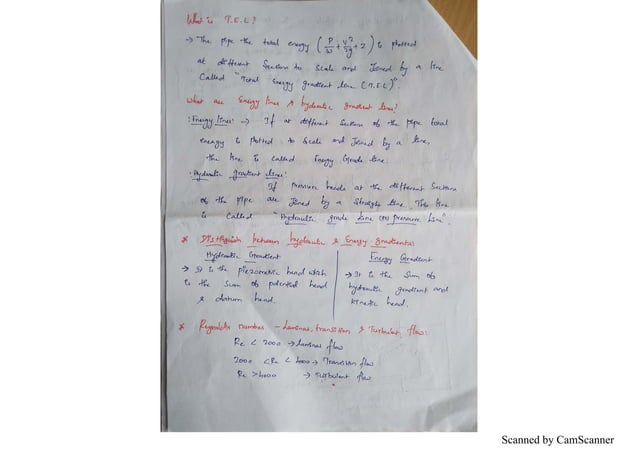 What is T.E.L?
→ The pipe the total energy (P/w + v²/2g + z) is plotted
at different Section to Scale and Joined by a line
Called "Total Energy gradient line (T.E.L)".
What are Energy lines & hydraulic gradient lines?
Energy lines: → If at different Section of the pipe total
energy is plotted to Scale and Joined by a line,
the line is called Energy Grade line.
Hydraulic gradient line:
If pressure heads at the different Sections
of the pipe are Joined by a Straight line. This line
is called "Hydraulic grade line (or) pressure line".
* Distinguish between hydraulic & Energy gradients:
Hydraulic Gradient
→ It is the piezometric head which
is the sum of potential head
& datum head.
Energy Gradient
→ It is the sum of
hydraulic gradient and
kinetic head.
* Reynolds number - Laminar, transition & Turbulent flow:
Re < 2000 → laminar flow
2000 < Re < 4000 → Transition flow
Re > 4000 → Turbulent flow
Scanned by CamScanner